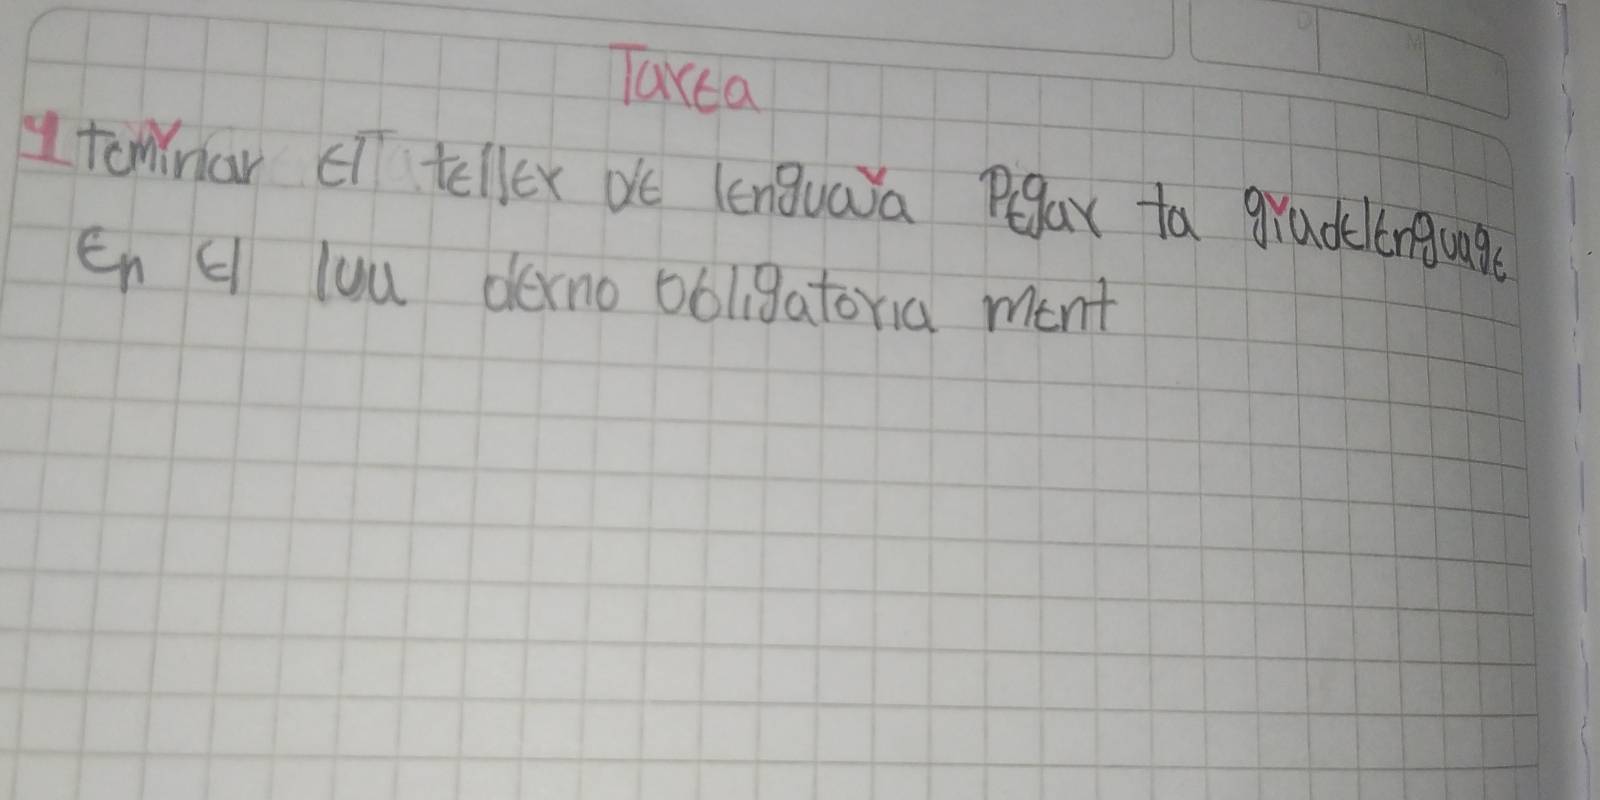 Tarea
1 teminar El teller de lenguaja Pegar ta giadelenguage
En el luu derno obligatoria ment